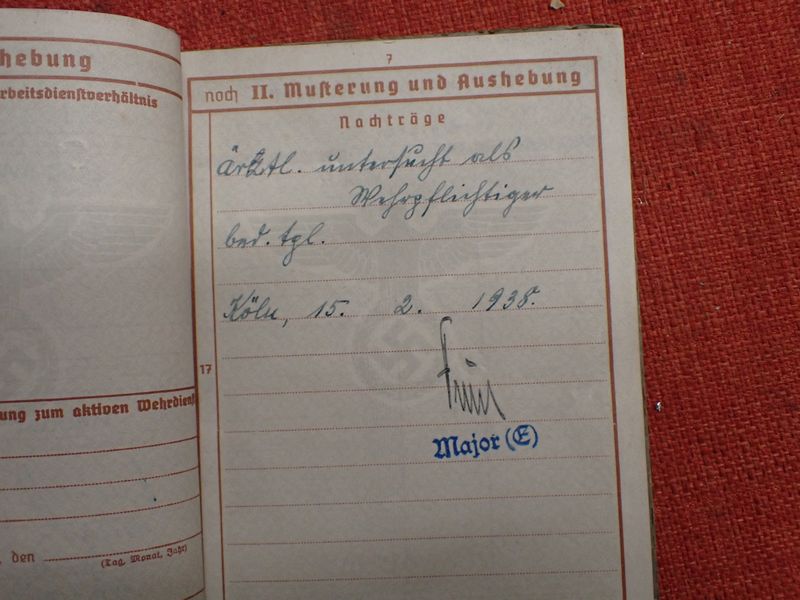 hebung
rbeitsdienstverhältnis
ung zum aktiven Wehrdiens
, den
(Tag, Monat, Jahr)
7
noch II. Musterung und Aushebung
Nachträge
ärztl. untersucht als
Wehrpflichtiger
bed. tgl.
Köln, 15. 2. 1938.
17
Major (E)